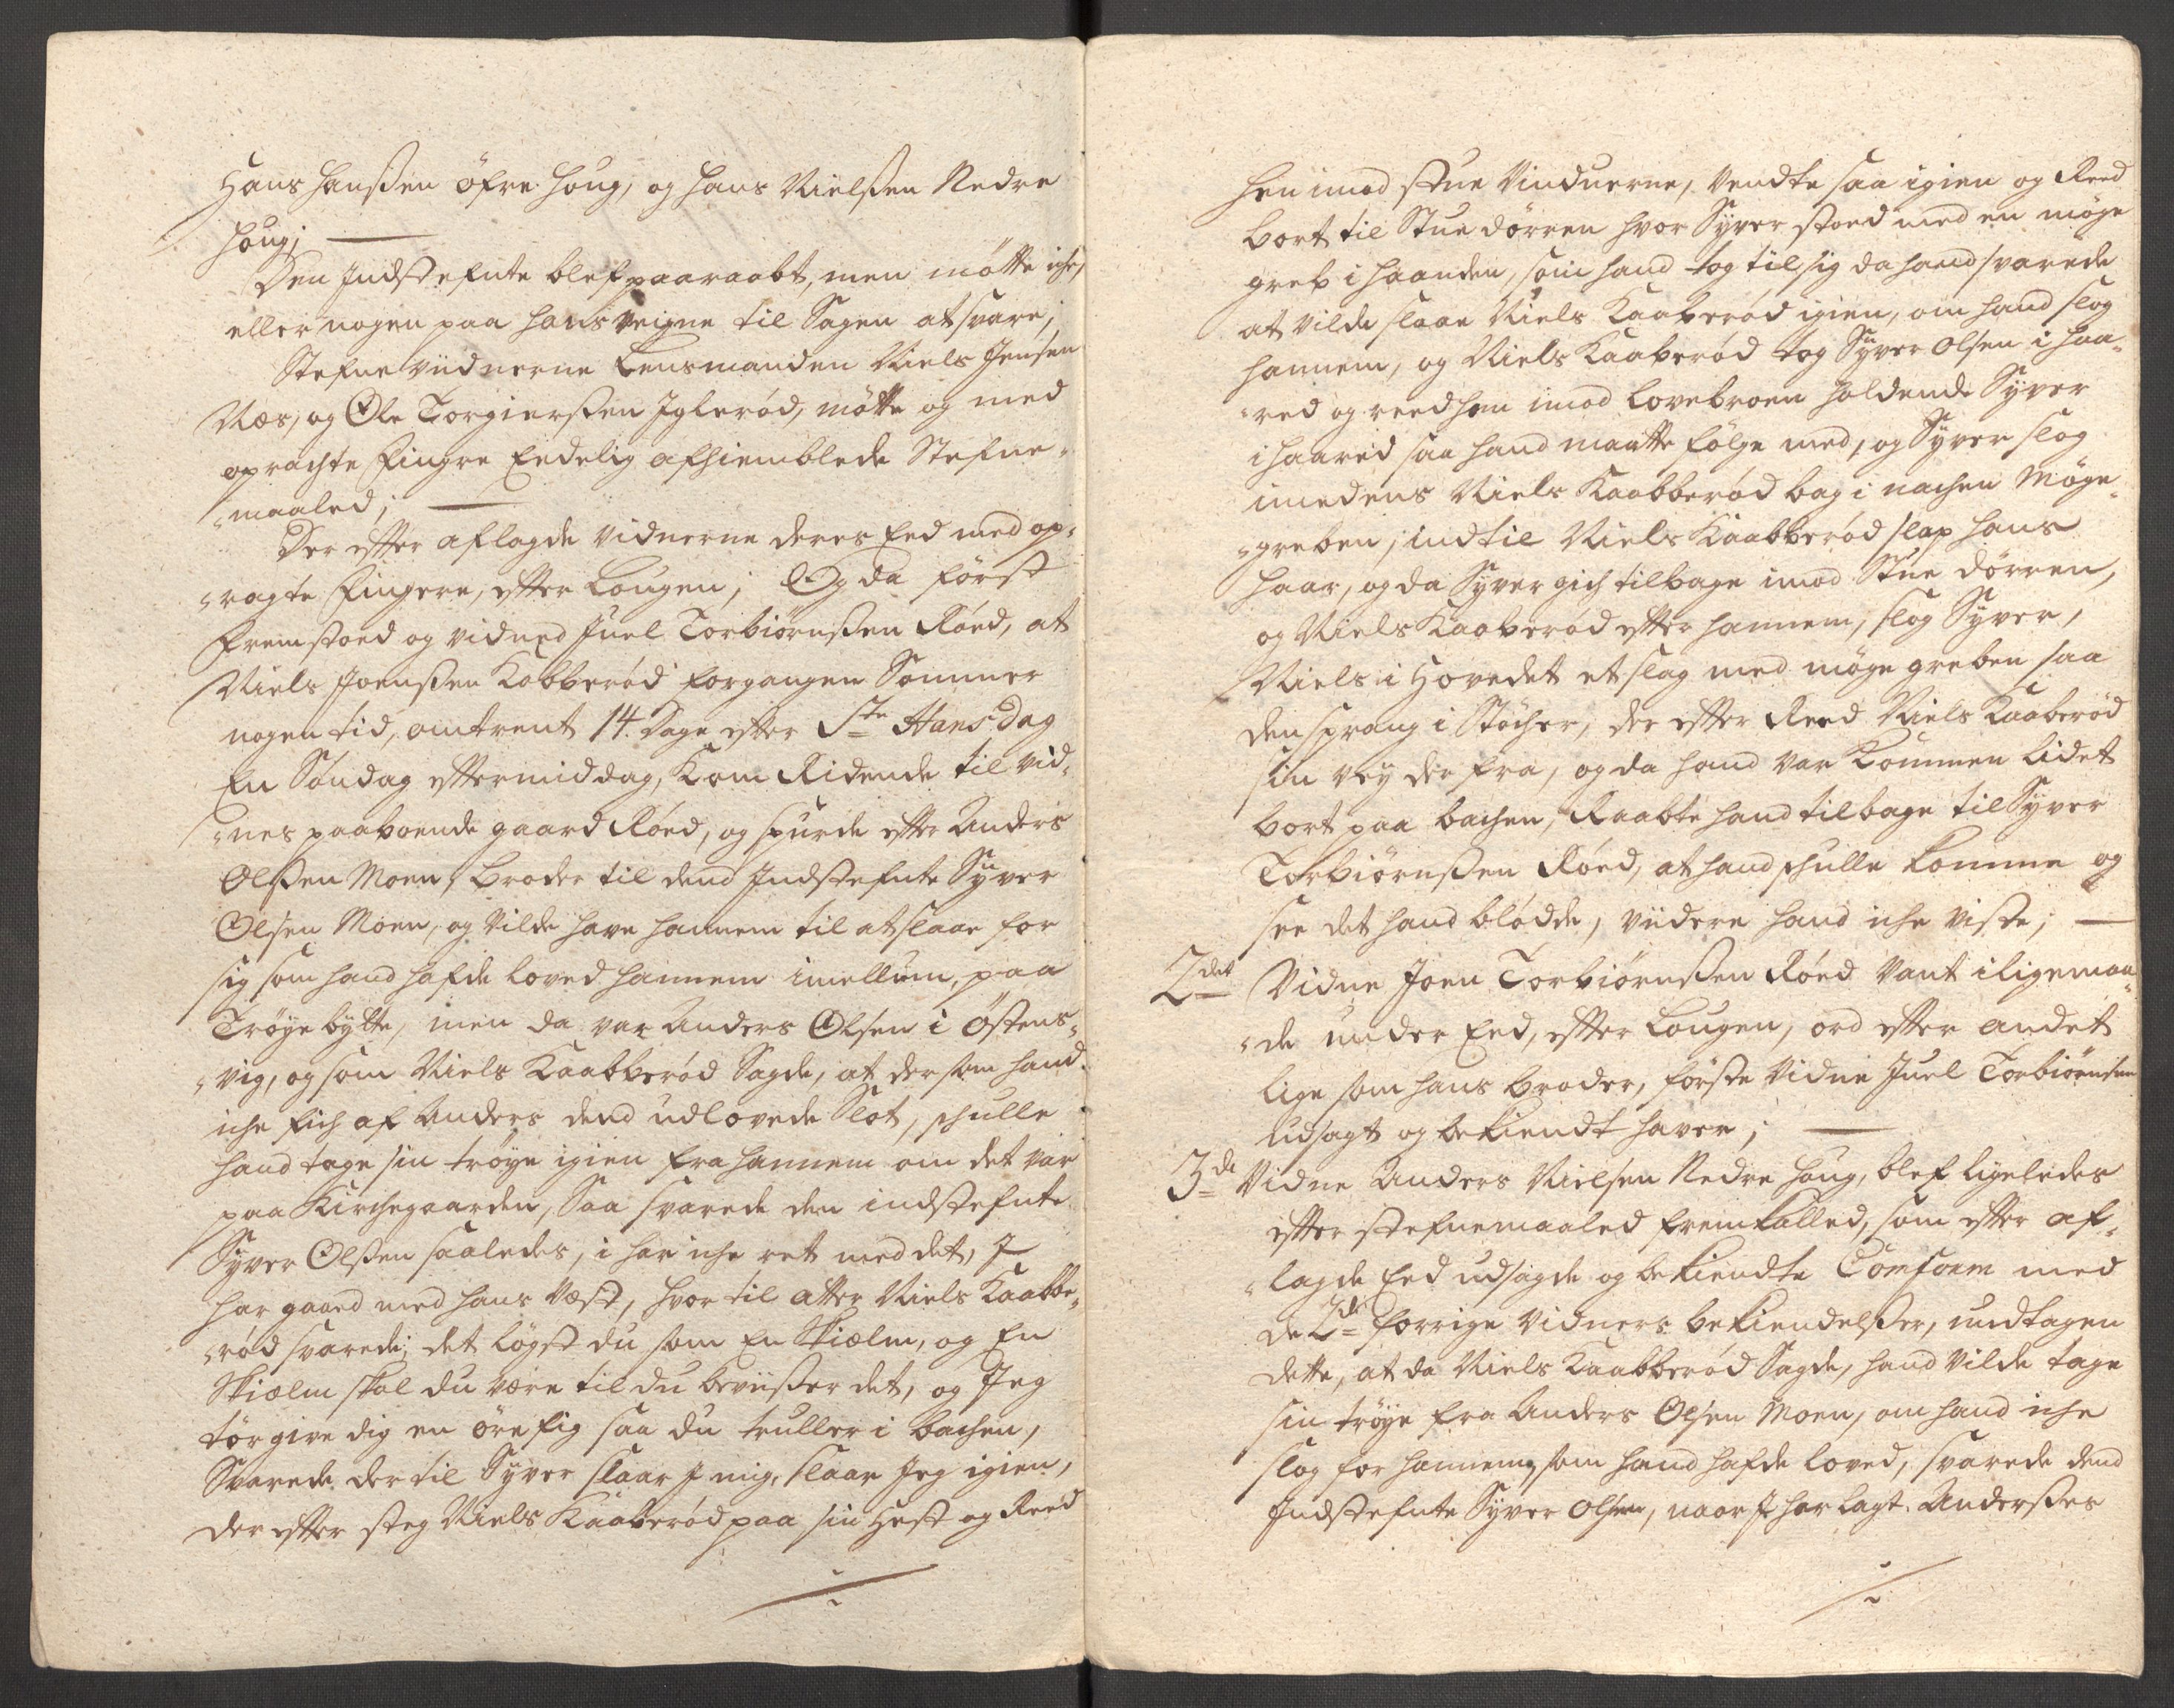 Hans Hanßen öfre Houg, og Hans Nielßen Nedre
Houg;
Den Indstefnte blef paaraabt, men mötte iche,
eller nogen paa hans veigne til Sagen at svare;
Stefne vidnerne Lensmanden Niels Jensen
Næs, og Ole Torgierßen Iglerød, mötte og med
oprachte Fingre Eedelig afhiemblede Stefne-
-maaled;
Der efter aflagde vidnerne deres Eed med op-
-ragte Fingere, efter Lougen; Og da först
fremstoed og vidned Juel Torbiörnßen Röed, at
Niels Joenßen Kabberöd forgangen Sommer
nogen tid, omtrent 14. Dage efter Ste Hans Dag
En Söndag eftermiddag, kom Ridende til vid-
-nes paaboende gaard Röed, og spurde efter Anders
Olßen Moen, broder til dend Indstefnte Syver
Olsen Moen, og vilde have hannem til at slaae for
sig som hand hafde loved hannem imellum, paa
Tröye bytte, men da var Anders Olsen i Östens-
-vig, og som Niels Kaabberöd Sagde, at dersom hand
iche fich af Anders dend udlovede Slot, schulle
hand tage sin tröye igien fra hannem om det var
paa Kirchegaarden, Saa svarede den indstefnte
Syver Olßen saaledes, i har iche ret med det, I
har gaaed med hans Vest, hvor til atter Niels Kaabbe-
-röd svarede; det lögst du som En Skielm, og En
Skielm skal du være til du beviißer det, og Jeg
tör give dig en örefig saa du truller i bachen,
Svarede der til Syver slaar I mig, slaar Jeg igien,
der efter steg Niels Kaaberöd paa sin Hest og Reed
hen imod stue vinduerne, vendte saa igien og Reed
bort til Stue dörren hvor Syver stoed med en möge
greb i haanden, som hand tog til sig da hand svarede
at vilde slaae Niels Kaaberöd igien, om hand slog
hannem, og Niels Kaaberöd tog Syver Olsen i haa-
-red og reed hen imod Lovebroen holdende Syver
i haared saa hand maatte fölge med, og Syver slog
imedens Niels Kaabberöd bag i nachen Möge-
-greben, indtil Niels Kaabberöd slap hans
haar, og da Syver gich tilbage imod Stue dörren,
og Niels Kaaberöd efter hannem, slog Syver,
Niels i Hovedet et slag med möge greben saa
den sprang i Stöcher, der efter Reed Niels Kaaberöd
sin vey der fra, og da hand var kommen lidet
bort paa bachen, Raabte hand tilbage til Syver
Torbiörnßen Röed, at hand schulle komme og
see det hand blödde, viidere hand iche viste;
2det Vidne Joen Torbiörnßen Röed vant i ligemaa-
-de under Eed, efter Lougen, ord efter andet
lige som hans broder, förste vidne Juel Torbiörnsen
udsagt og bekiendt haver;
3de Vidne Anders Nielsen Nedre Houg, blef ligeledes
efter stefnemaaled fremkalled, som efter af-
-lagde Eed udsagde og bekiendte Comform med
de 2de forrige vidners bekiendelßer, undtagen
dette, at da Niels Kaabberöd Sagde, hand vilde tage
sin tröye fra Anders Olsen Moen, om hand iche
slog for hannem, som hand hafde loved, svarede dend
Indstefnte Syver Olsen, naar I har lagt Anderßes